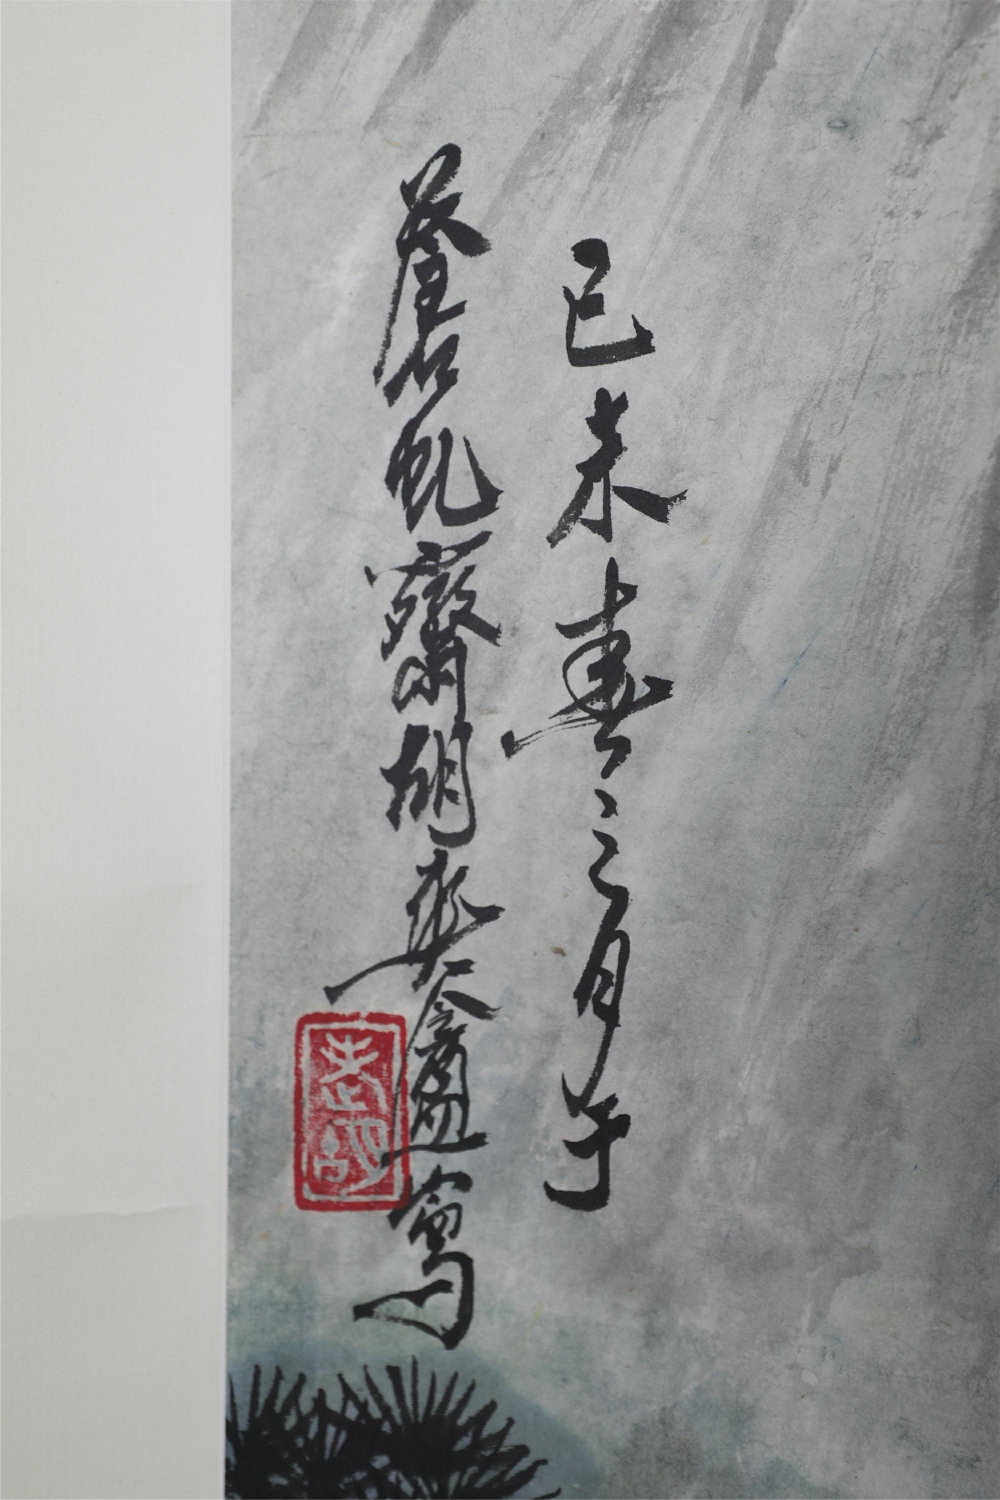 己未春三月于
蒼虬齋胡爽盦寫
老胡